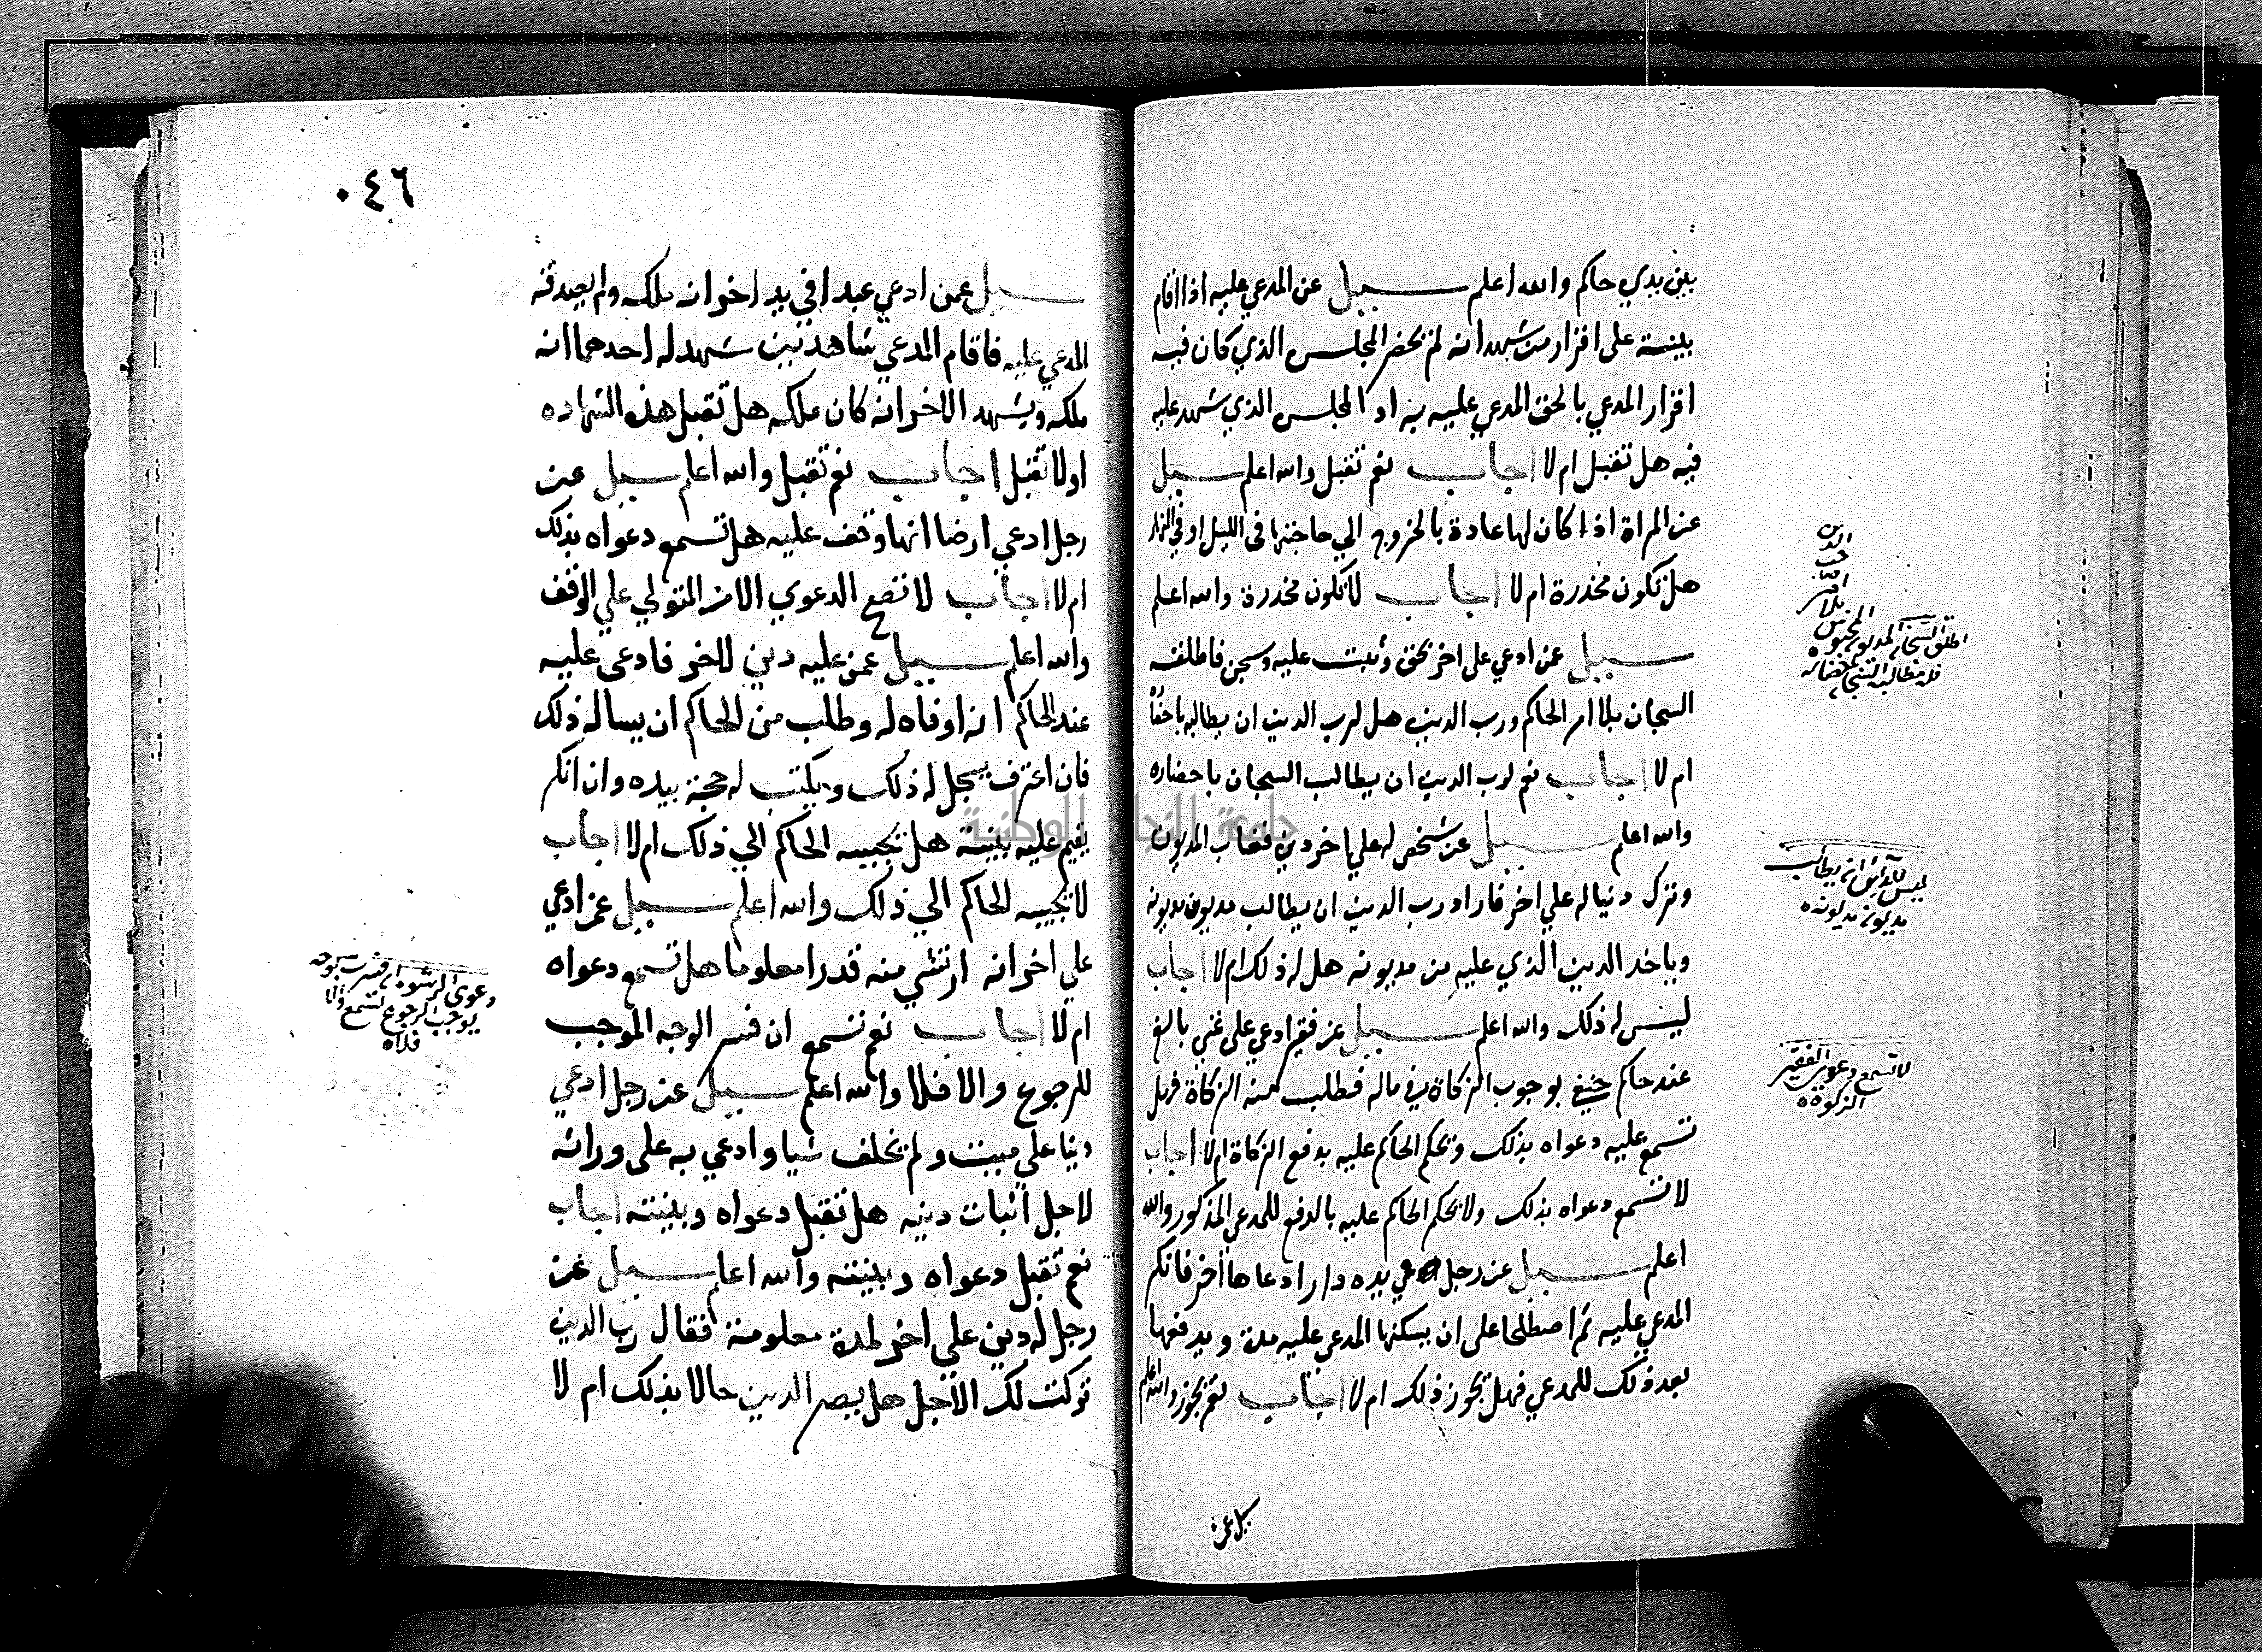 بين يدي حاكم والله اعلم سيل عن المدعي عليه اذا اقام
بينة على اقرار من شهد انه لم يحضر المجلس الذي كان فيه
اقرار المدعي بالحق المدعي عليه به او المجلس الذي شهد عليه
فيه هل تقبل ام لا اجاب نعم تقبل والله اعلم سيل
عن المراة اذا كان لها عادة بالخروج الي حاجتها في الليل او في النهار
هل تكون مخدرة ام لا اجاب لا تكون مخدرة والله اعلم
سيل عن ادعي على اخر بحق وثبت عليه وسجن فاطلقه
السجان بلا امر الحاكم ورب الدين هل لرب الدين ان يطالبه باحضاره
ام لا اجاب نعم لرب الدين ان يطالب السجان باحضاره
والله اعلم سيل عن شخص له علي اخر دين فغاب المديون
وترك دينا له علي اخر فاراد رب الدين ان يطالب مديون مديونه
وياخد الدين الذي عليه من مديونه هل له ذلك ام لا اجاب
ليس له ذلك والله اعلم سيل عن فقير ادعي على غني بالغ
عند حاكم حنفي بوجوب الزكاة في ماله فطلب منه الزكاة فهل
تسمع عليه دعواه بذلك ويحكم الحاكم عليه بدفع الزكاة ام لا اجاب
لا تسمع دعواه بذلك ولا يحكم الحاكم عليه بالدفع للمدعي المذكور والله
اعلم سيل عن رجل في يده دار ادعاها اخر فانكر
المدعي عليه ثم اصطلحا على ان يسكنها المدعي عليه مدة ويدفعها
بعد ذلك للمدعي فهل يجوز ذلك ام لا اجاب نعم يجوز والله اعلم
سيل عمن
اطلق السجان المديون المحبوس
بلا امر
رب الدين
فله مطالبة السجان باحضاره
ليس للدائن ان يطالب
مديون مديونه
لا تسمع دعوى الفقير
الزكوة
٠٤٦
سيل عمن ادعي عبدا في يد اخر انه ملكه ولم يصدقه
المدعي عليه فاقام المدعي شاهدين شهد له احدهما انه
ملكه ويشهد الاخر انه كان ملكه هل تقبل هذه الشهاده
اولا تقبل اجاب نعم تقبل والله اعلم سيل عن
رجل ادعي ارضا انها وقف عليه هل تسمع دعواه بذلك
ام لا اجاب لا تصح الدعوي الا من المتولي علي الوقف
والله اعلم سيل عمن عليه دين لاخر فادعي عليه
عند الحاكم انه اوفاه له وطلب من الحاكم ان يساله ذلك
فان اعترف يسجل له ذلك ويكتب له حجة بيده وان انكر
يقيم عليه بينة هل يجيبه الحاكم الي ذلك ام لا اجاب
لا يجيبه الحاكم الي ذلك والله اعلم سيل عمن ادعي
علي اخر انه ارتشي منه قدرا معلوما هل تسمع دعواه
ام لا اجاب نعم تسمع ان فسر الوجه الموجب
للرجوع والا فلا والله اعلم سيل عن رجل ادعي
دينا علي ميت ولم يخلف شيا وادعي به على وراثه
لاجل اثبات دينه هل تقبل دعواه وبينته اجاب
نعم تقبل دعواه وبينته والله اعلم سيل عن
رجل له دين علي اخر لمدة معلومة فقال رب الدين
تركت لك الاجل هل يصر الدين حالا بذلك ام لا
دعوى الرشوة ان فسرت بوجه
يوجب الرجوع تسمع والا
فلا
جامعة النجاح الوطنية